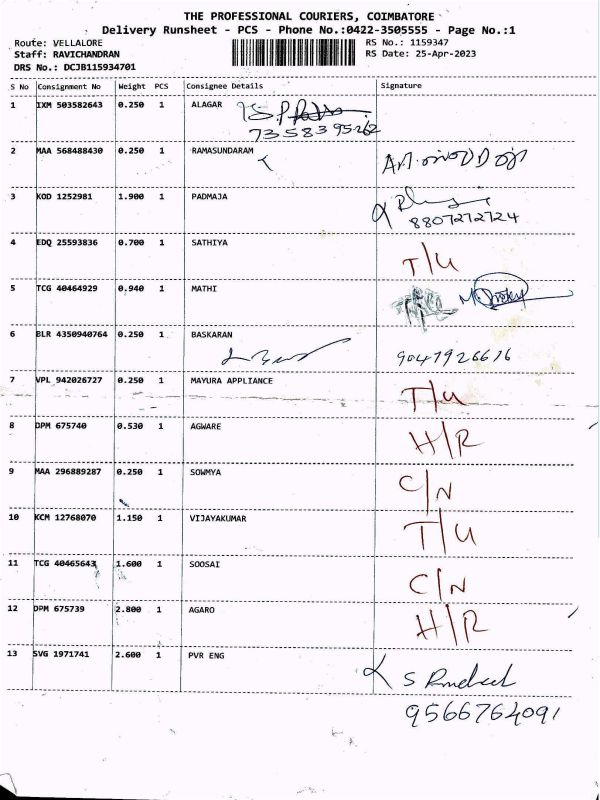 THE PROFESSIONAL COURIERS, COIMBATORE
Delivery Runsheet - PCS - Phone No.:0422-3505555 - Page No.:1
Route: VELLALORE RS No.: 1159347
Staff: RAVICHANDRAN RS Date: 25-Apr-2023
DRS No.: DCJB115934701
S No Consignment No Weight PCS Consignee Details Signature
1 IXM 503582643 0.250 1 ALAGAR
7358395262
2 MAA 568488430 0.250 1 RAMASUNDARAM
3 KOD 1252981 1.900 1 PADMAJA
8807272724
4 EDQ 25593836 0.700 1 SATHIYA T/U
5 TCG 40464929 0.940 1 MATHI
6 BLR 4350940764 0.250 1 BASKARAN
9047926616
7 VPL 942026727 0.250 1 MAYURA APPLIANCE T/U
8 DPM 675740 0.530 1 AGWARE H/R
9 MAA 296889287 0.250 1 SOWMYA C/N
10 KCM 12768070 1.150 1 VIJAYAKUMAR T/U
11 TCG 40465643 1.600 1 SOOSAI C/N
12 DPM 675739 2.800 1 AGARO H/R
13 SVG 1971741 2.600 1 PVR ENG
9566764091